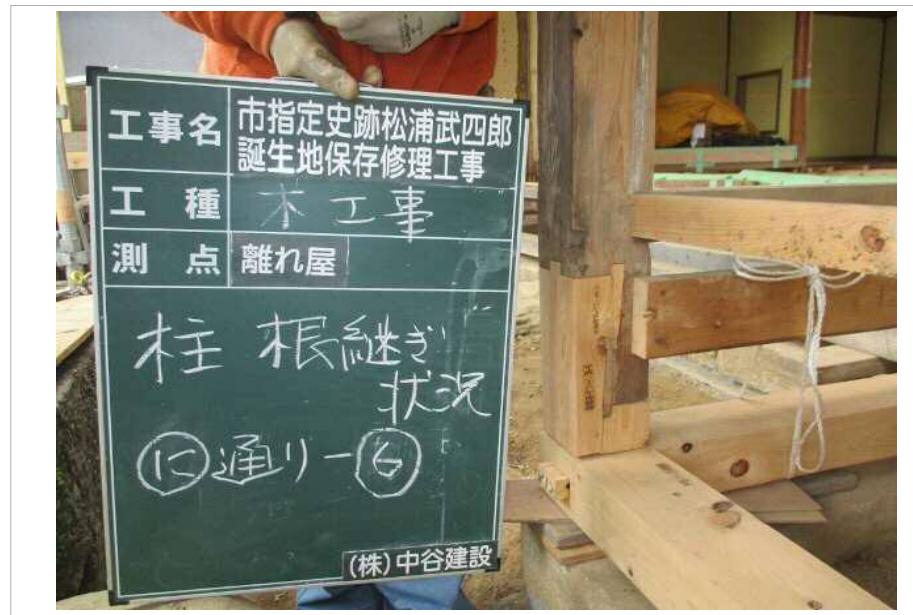 工事名 市指定史跡松浦武四郎
誕生地保存修理工事
工種 木工事
測点 離れ屋
柱 根継ぎ
状況
に通り-6
(株)中谷建設